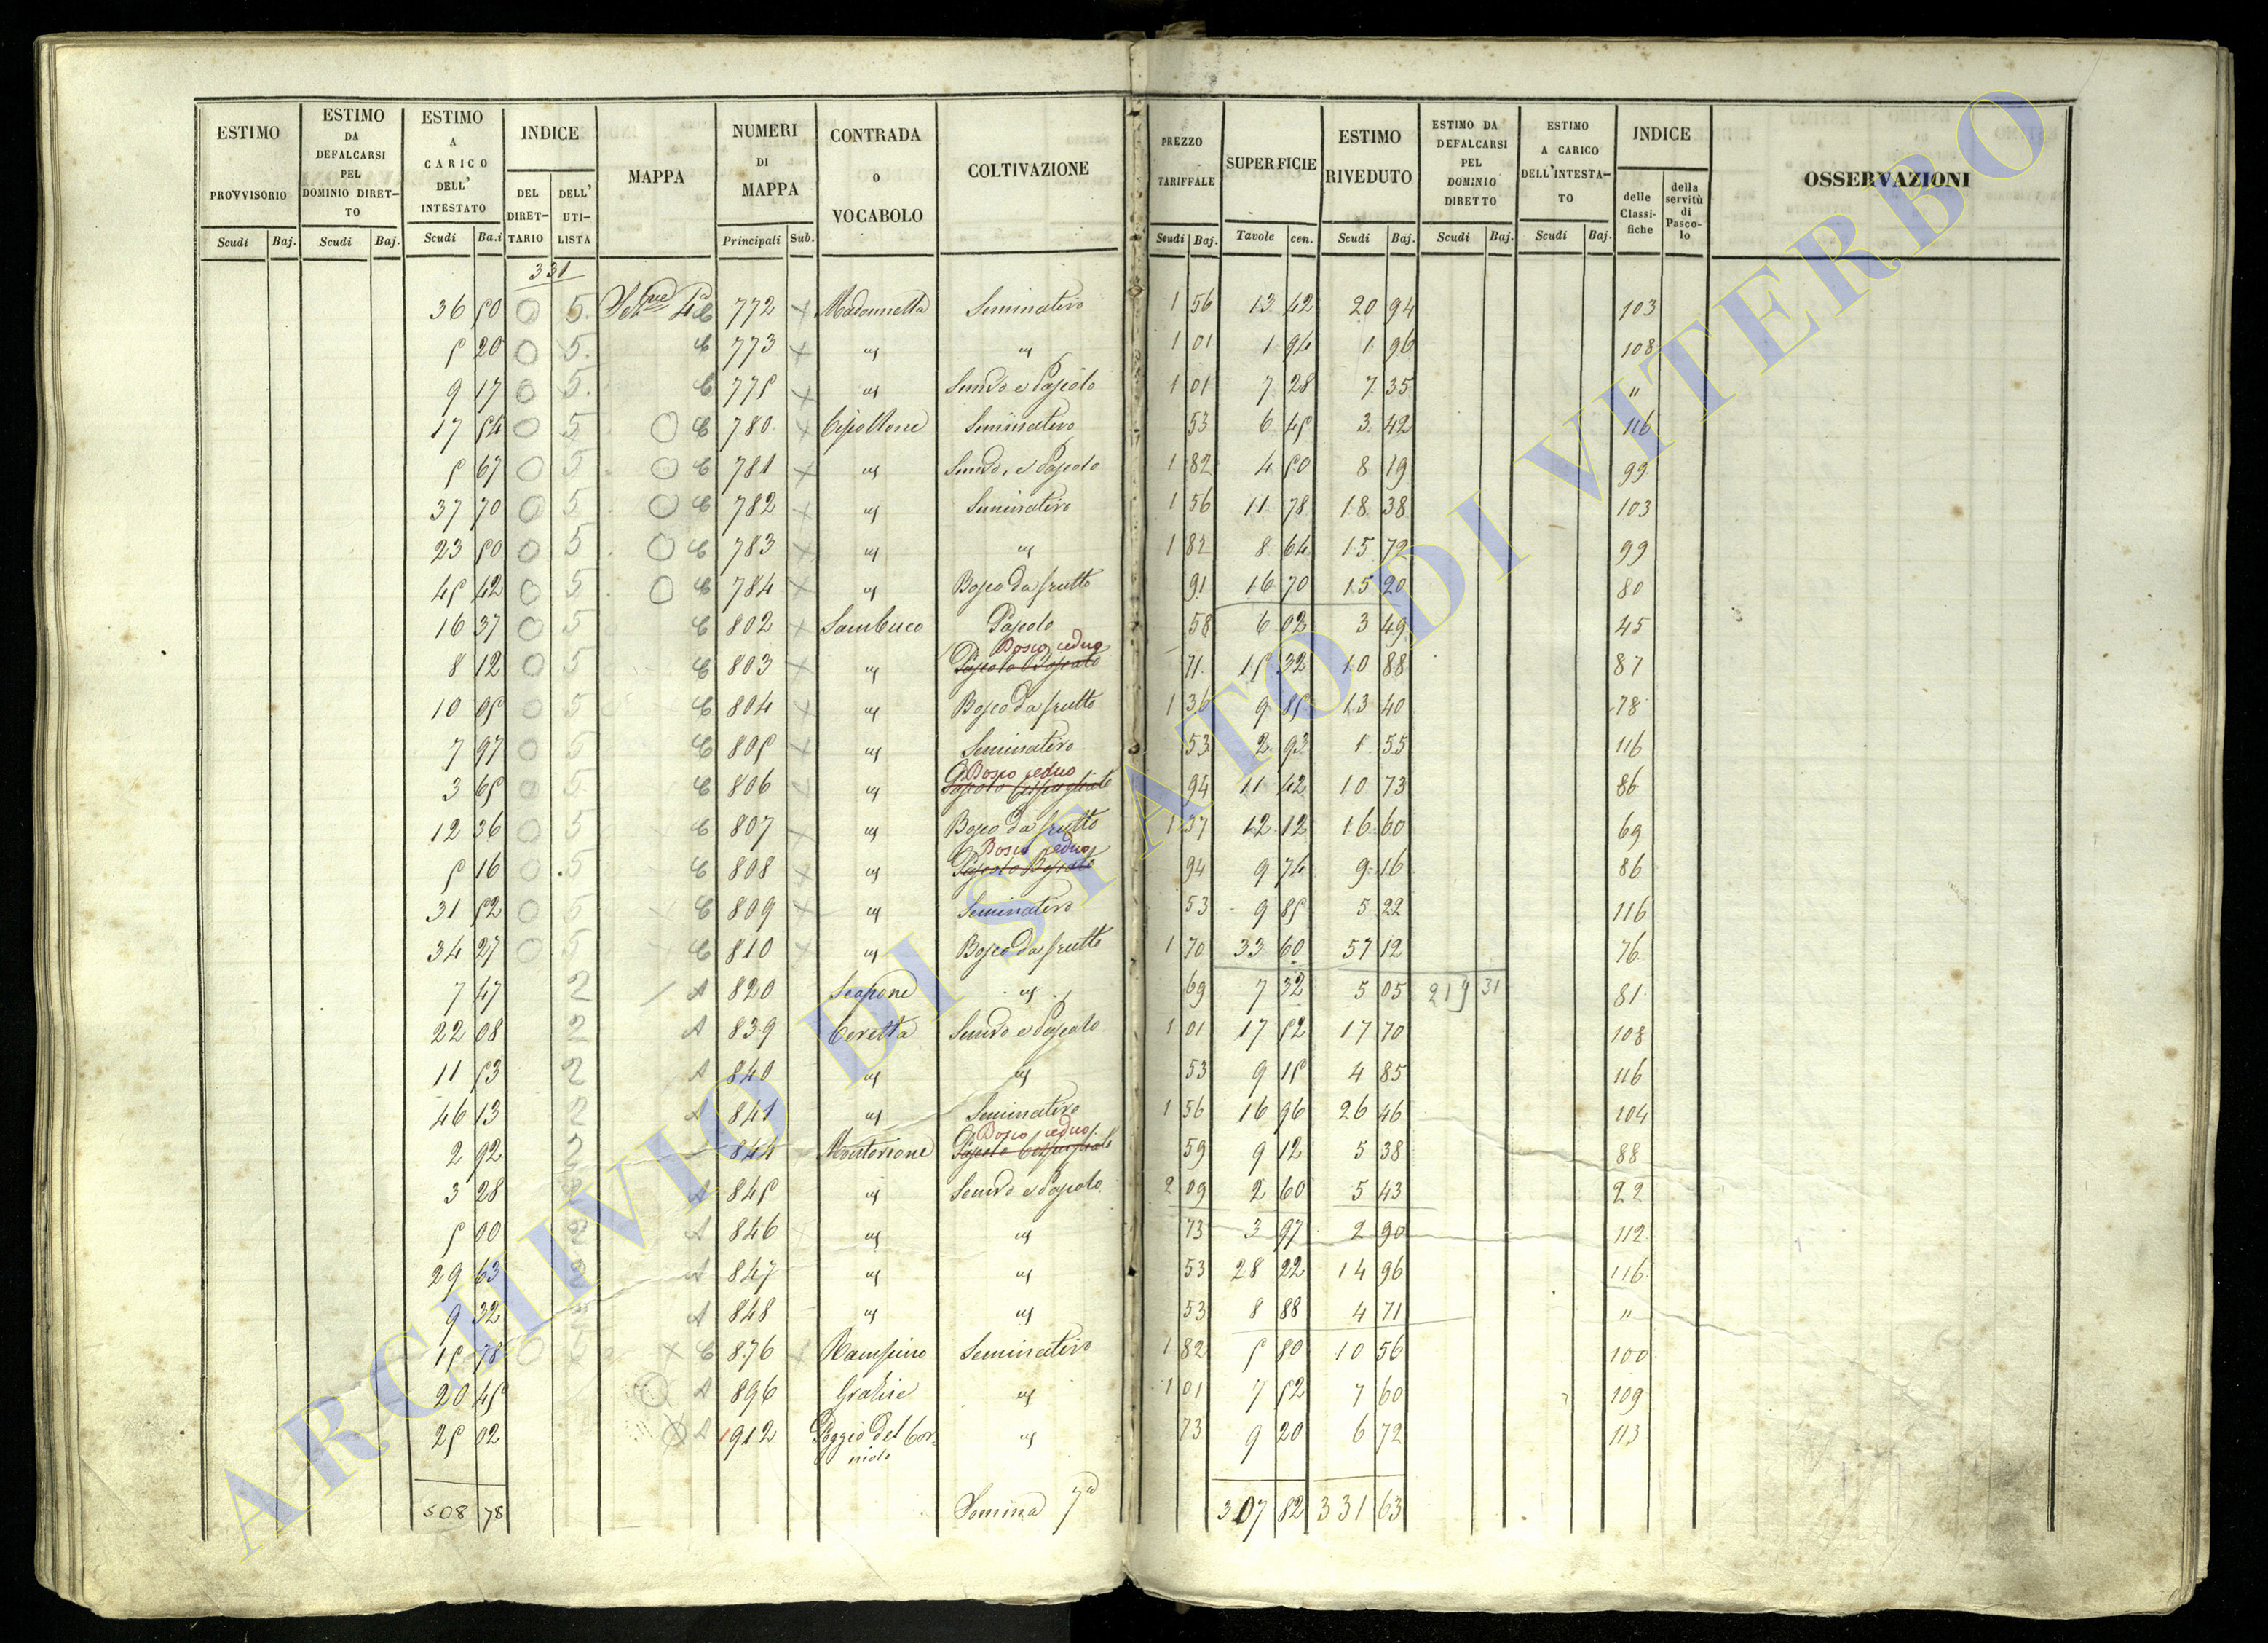 ESTIMO PROVVISORIO | ESTIMO DA DEFALCARSI PEL DOMINIO DIRET-TO | ESTIMO A CARICO DELL' INTESTATO | INDICE | MAPPA | NUMERI DI MAPPA | CONTRADA o VOCABOLO | COLTIVAZIONE | PREZZO TARIFFALE | SUPERFICIE | ESTIMO RIVEDUTO | ESTIMO DA DEFALCARSI PEL DOMINIO DIRETTO | ESTIMO A CARICO DELL'INTESTA-TO | INDICE | OSSERVAZIONI
DEL DIRET-TARIO | DELL' UTI-LISTA | delle Classi-fiche | della servitù di Pasco-lo
Scudi | Baj. | Scudi | Baj. | Scudi | Ba.i | Principali | Sub. | Scudi | Baj. | Tavole | cen. | Scudi | Baj. | Scudi | Baj. | Scudi | Baj.
331
36 50 | 5 | 772 | Madonnella | Seminativo | 1 56 | 13 42 | 20 94 | 103
5 20 | 5 | 773 | " | " | 1 01 | 1 94 | 1 96 | 108
9 17 | 5 | 775 | " | Semvo e Pascolo | 1 01 | 7 28 | 7 35 | "
17 54 | 5 | 780 | Cipollone | Seminativo | 53 | 6 45 | 3 42 | 116
5 67 | 5 | 781 | " | Semvo, e Pascolo | 1 82 | 4 50 | 8 19 | 99
37 70 | 5 | 782 | " | Seminativo | 1 56 | 11 78 | 18 38 | 103
23 50 | 5 | 783 | " | " | 1 82 | 8 64 | 15 72 | 99
45 42 | 5 | 784 | " | Bosco da frutto | 91 | 16 70 | 15 20 | 80
16 37 | 5 | 802 | Sambuco | Pascolo | 58 | 6 02 | 3 49 | 45
Bosco ceduo
8 12 | 5 | 803 | " | Pascolo Boscato | 71 | 15 32 | 10 88 | 87
10 05 | 5 | 804 | " | Bosco da frutto | 1 36 | 9 85 | 13 40 | 78
7 97 | 5 | 805 | " | Seminativo | 53 | 2 93 | 1 55 | 116
Bosco ceduo
3 65 | 5 | 806 | " | Pascolo Cespugliato | 94 | 11 42 | 10 73 | 86
12 36 | 5 | 807 | " | Bosco da frutto | 1 37 | 12 12 | 16 60 | 69
Bosco ceduo
5 16 | 5 | 808 | " | Pascolo Boscato | 94 | 9 74 | 9 16 | 86
31 52 | 5 | 809 | " | Seminativo | 53 | 9 85 | 5 22 | 116
34 27 | 5 | 810 | " | Bosco da frutto | 1 70 | 33 60 | 57 12 | 76
7 47 | 2 | A | 820 | Scopone | " | 69 | 7 32 | 5 05 | 219 31 | 81
22 08 | 2 | A | 839 | Ceretta | Semvo e Pascolo | 1 01 | 17 52 | 17 70 | 108
11 53 | 2 | A | 840 | " | " | 53 | 9 15 | 4 85 | 116
46 13 | 2 | A | 841 | " | Seminativo | 1 56 | 16 96 | 26 46 | 104
Bosco ceduo
2 92 | 2 | 844 | Montorione | Pascolo Cespugliato | 59 | 9 12 | 5 38 | 88
3 28 | 2 | A | 845 | " | Semvo e Pascolo | 2 09 | 2 60 | 5 43 | 22
5 00 | 2 | A | 846 | " | " | 73 | 3 97 | 2 90 | 112
29 63 | 2 | A | 847 | " | " | 53 | 28 22 | 14 96 | 116
9 32 | A | 848 | " | " | 53 | 8 88 | 4 71 | "
15 78 | 5 | 876 | Rampino | Seminativo | 1 82 | 5 80 | 10 56 | 100
20 45 | A | 896 | " | 1 01 | 7 52 | 7 60 | 109
25 02 | A | 1912 | Poggio del Cor-niolo | " | 73 | 9 20 | 6 72 | 113
508 78 | Somma 7a | 307 82 | 331 63
ARCHIVIO DI STATO DI VITERBO